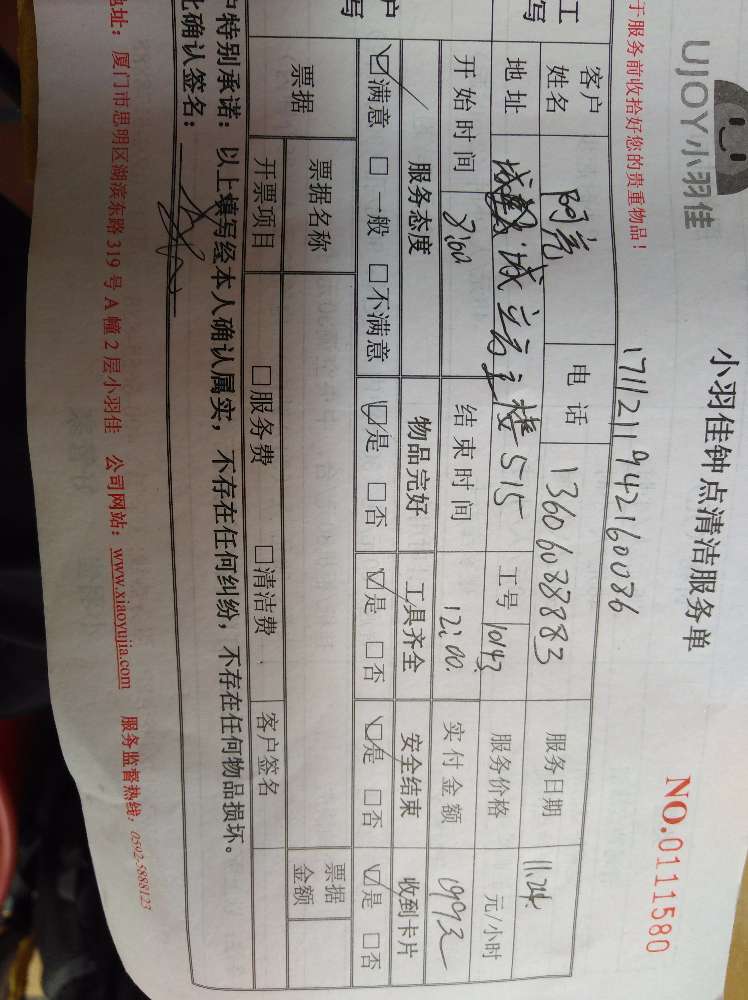 UJOY小羽佳
小羽佳钟点清洁服务单
NO.0111580
于服务前收拾好您的贵重物品!
1711211942160086
客户姓名 阿亮 电话 13606088883 服务日期 11.24
地址 城立方主楼515 工号 1043 服务价格 元/小时
开始时间 8:00 结束时间 12:00 实付金额 199元
服务态度 物品完好 工具齐全 安全结束 收到卡片
☑满意 □一般 □不满意 ☑是 □否 ☑是 □否 ☑是 □否 ☑是 □否
票据 票据名称 票据金额
开票项目 □服务费 □清洁费 客户签名
户特别承诺:以上填写经本人确认属实,不存在任何纠纷,不存在任何物品损坏。
比确认签名:
地址:厦门市思明区湖滨东路319号A幢2层小羽佳 公司网站:www.xiaoyujia.com 服务监督热线:0592-5888123